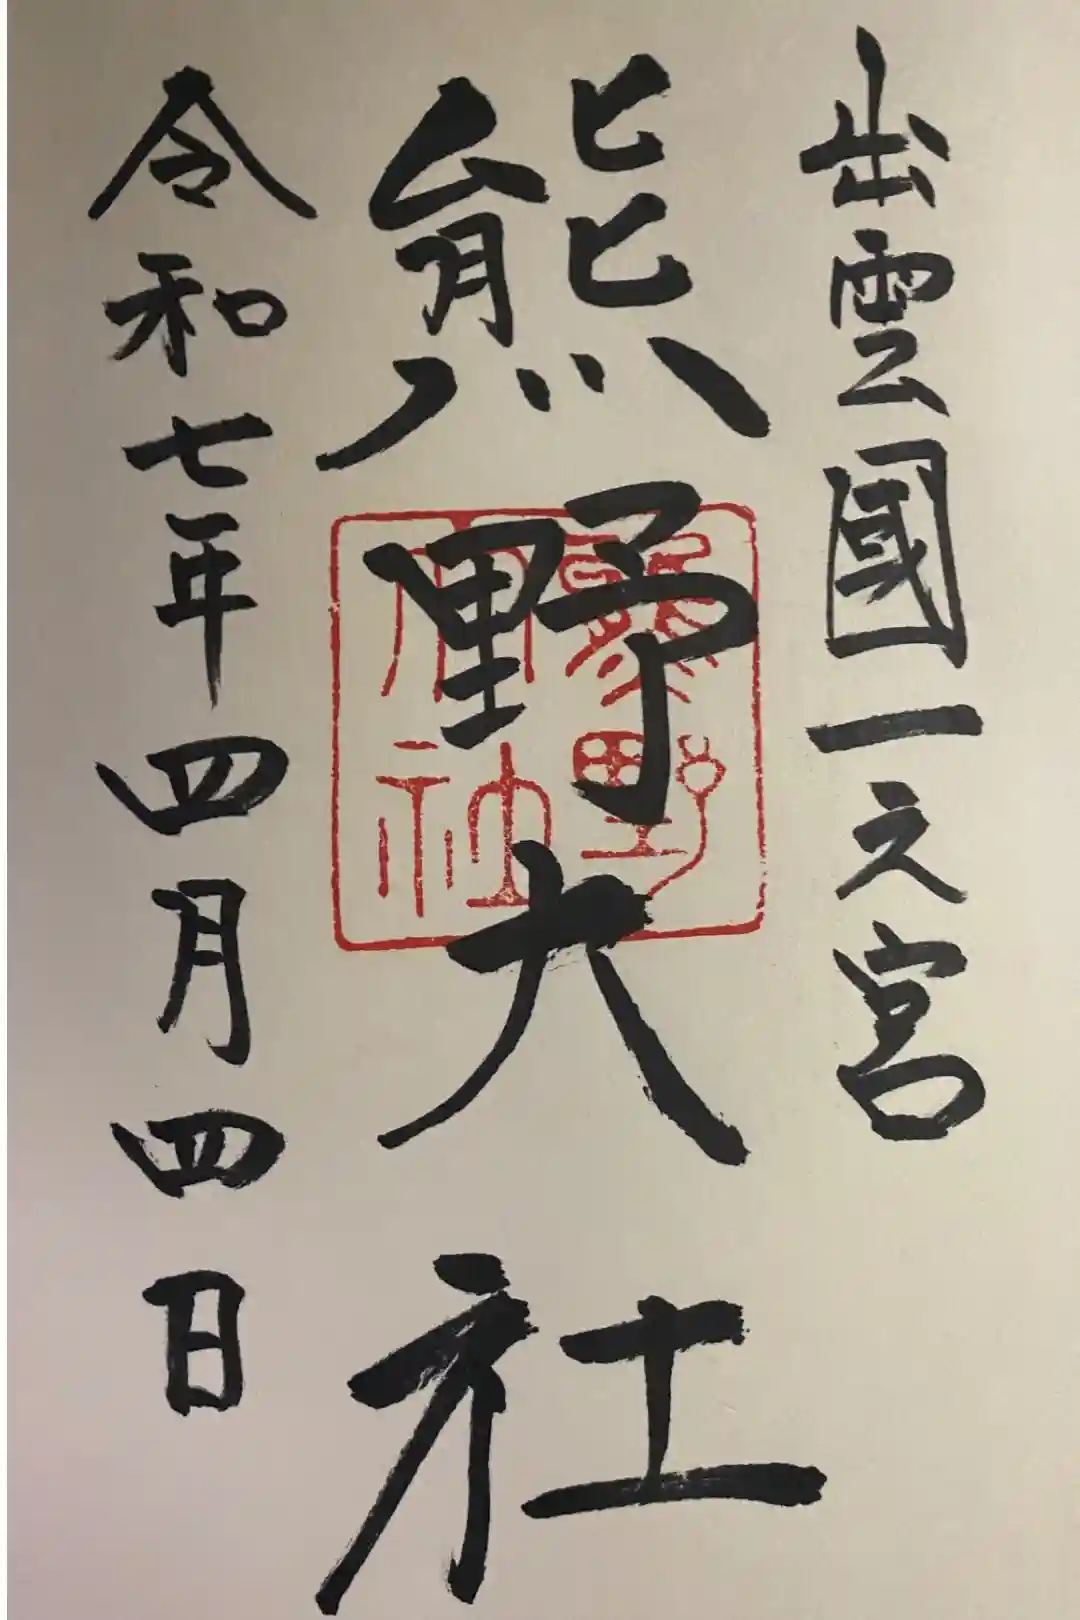 出雲國一之宮
熊野大社
令和七年四月四日
熊野
大社